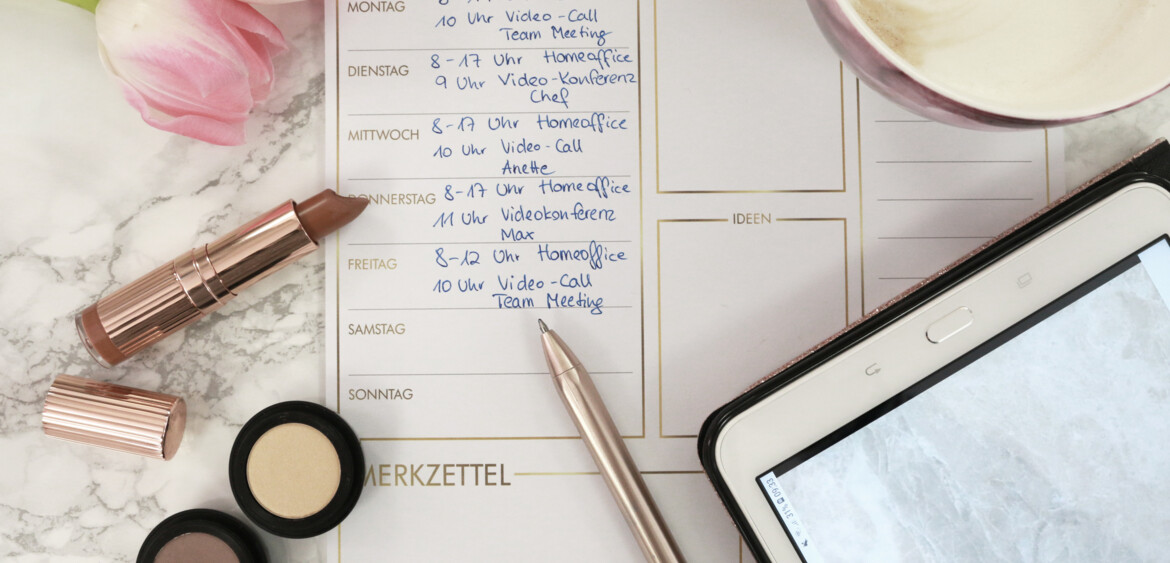 MONTAG
10 Uhr Video-Call
Team Meeting
DIENSTAG
8-17 Uhr Homeoffice
9 Uhr Video-Konferenz
Chef
MITTWOCH
8-17 Uhr Homeoffice
10 Uhr Video-Call
Anette
DONNERSTAG
8-17 Uhr Homeoffice
11 Uhr Videokonferenz
Max
FREITAG
8-12 Uhr Homeoffice
10 Uhr Video-Call
Team Meeting
SAMSTAG
SONNTAG
MERKZETTEL
IDEEN
31%
09:33